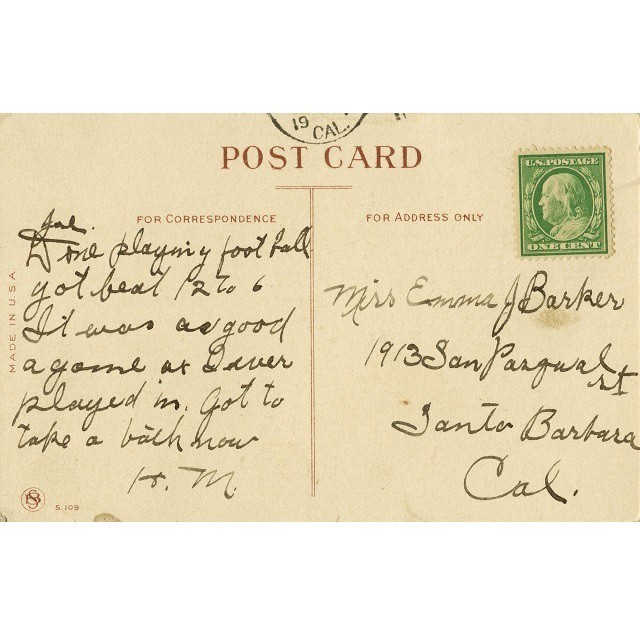 19
CAL.
POST CARD
U.S. POSTAGE
ONE CENT
FOR CORRESPONDENCE
FOR ADDRESS ONLY
MADE IN U.S.A.
Done playing football
got beat 12 to 6
It was as good
a game as I ever
played in. Got to
take a bath now
H. M.
Miss Emma J Barker
1913 San Pasqual
st
Santa Barbara
Cal.
S. 109